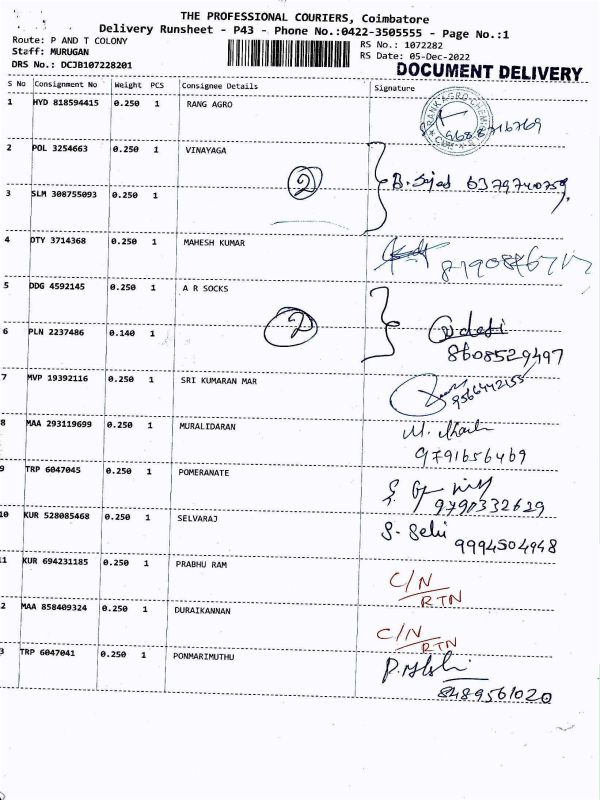 THE PROFESSIONAL COURIERS, Coimbatore
Delivery Runsheet - P43 - Phone No.:0422-3505555 - Page No.:1
Route: P AND T COLONY RS No.: 1072282
Staff: MURUGAN RS Date: 05-Dec-2022
DRS No.: DCJB107228201 DOCUMENT DELIVERY
S No Consignment No Weight PCS Consignee Details Signature
1 HYD 818594415 0.250 1 RANG AGRO
2 POL 3254663 0.250 1 VINAYAGA
2 B. Sajad 6379740759
3 SLM 308755093 0.250 1
4 OTY 3714368 0.250 1 MAHESH KUMAR
5 DDG 4592145 0.250 1 A R SOCKS
2
6 PLN 2237486 0.140 1
8608529497
7 MVP 19392116 0.250 1 SRI KUMARAN MAR
9566442155
8 MAA 293119699 0.250 1 MURALIDARAN
9791656469
9 TRP 6047045 0.250 1 POMERANATE
9791332629
10 KUR 528085468 0.250 1 SELVARAJ S. Selvi
9994504948
11 KUR 694231185 0.250 1 PRABHU RAM C/N
RTN
2 MAA 858409324 0.250 1 DURAIKANNAN C/N
RTN
3 TRP 6047041 0.250 1 PONMARIMUTHU
8489561020